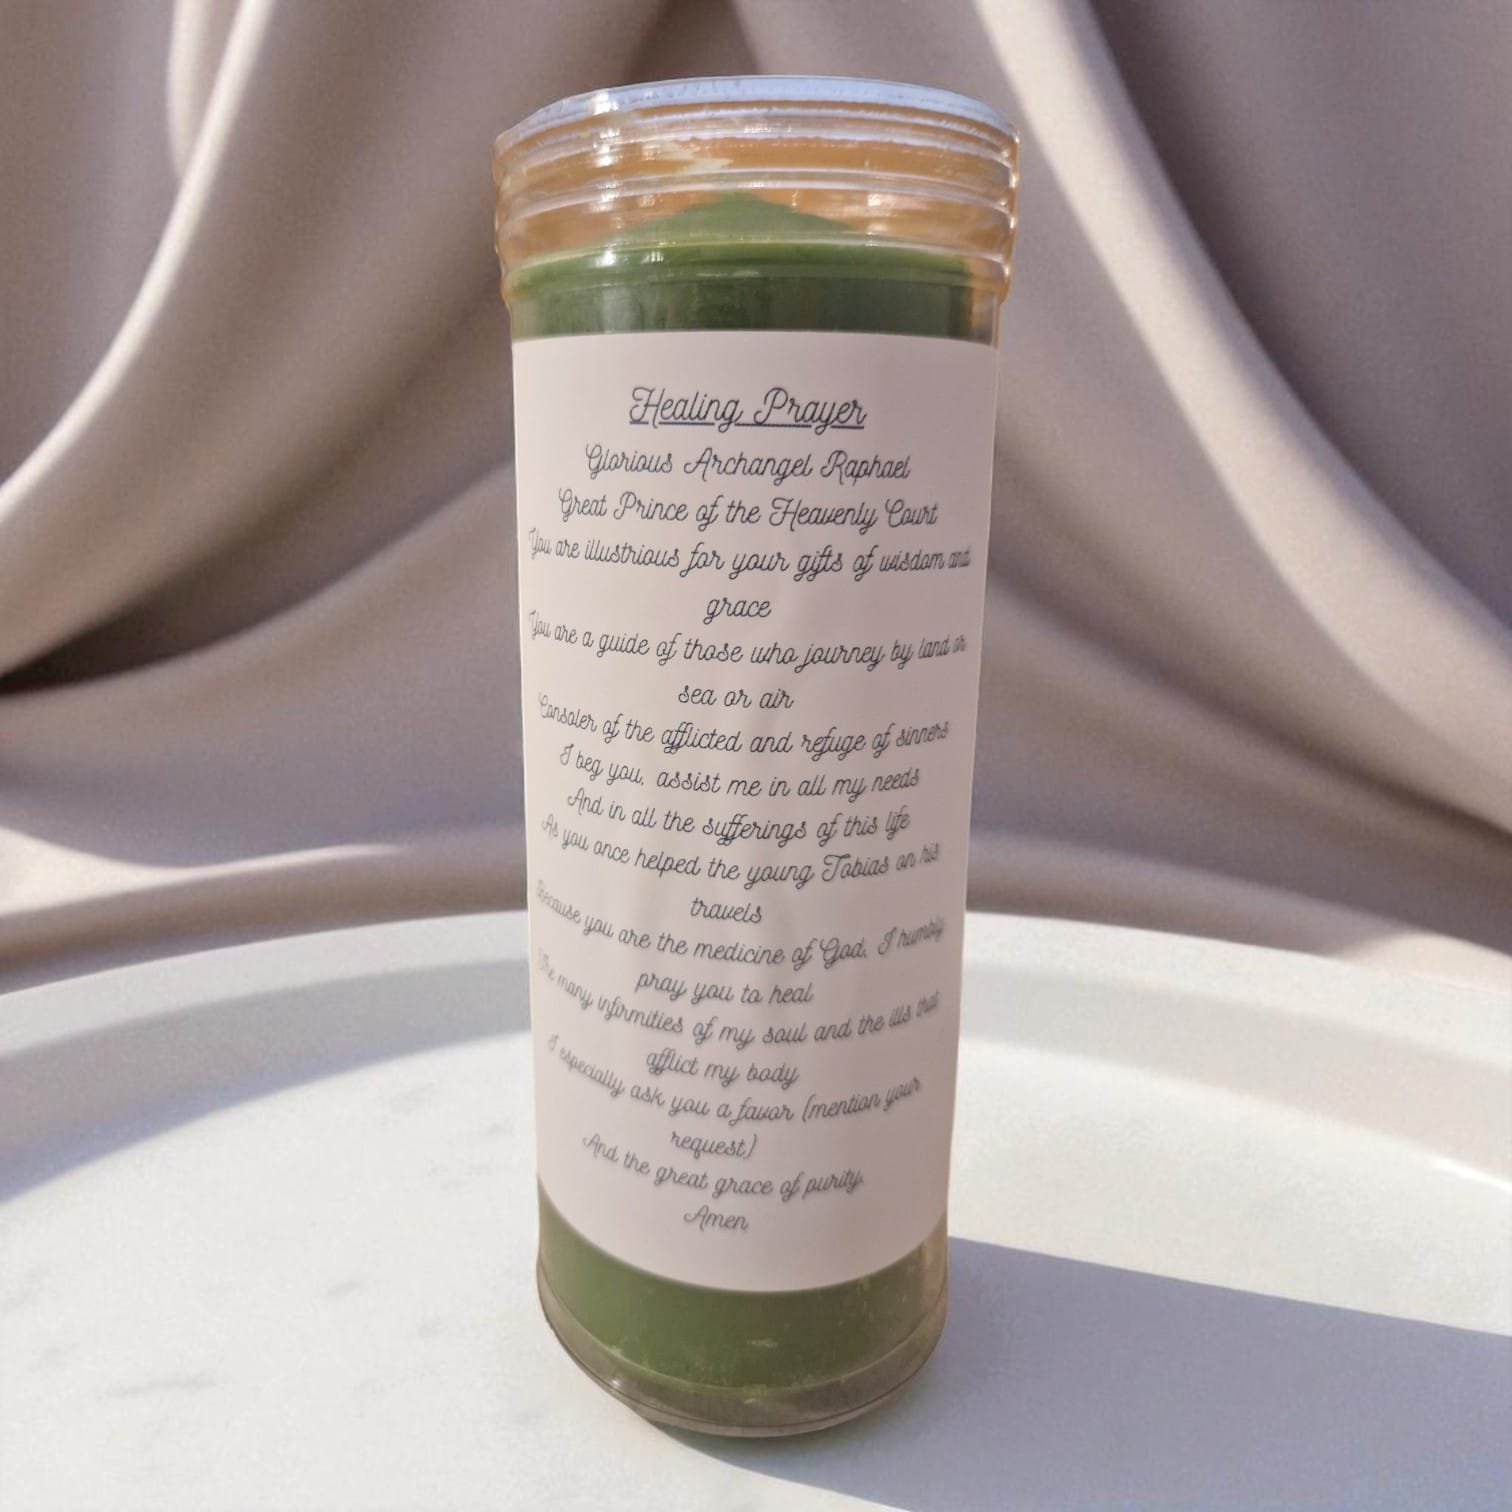 Healing Prayer
Glorious Archangel Raphael
Great Prince of the Heavenly Court
You are illustrious for your gifts of wisdom and
grace
You are a guide of those who journey by land or
sea or air
Consoler of the afflicted and refuge of sinners
I beg you, assist me in all my needs
And in all the sufferings of this life
As you once helped the young Tobias on his
travels
Because you are the medicine of God, I humbly
pray you to heal
The many infirmities of my soul and the ills that
afflict my body
I especially ask you a favor (mention your
request)
And the great grace of purity.
Amen